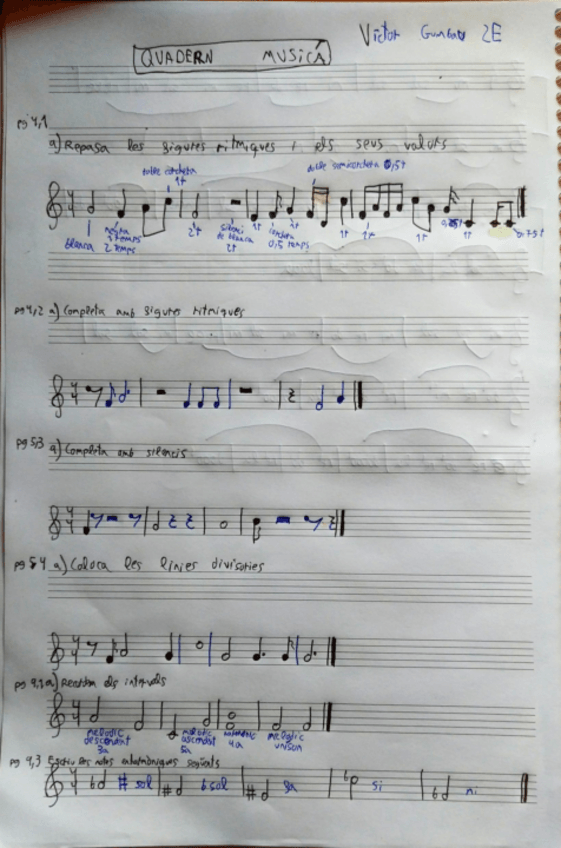 Victor 2E
QUADERN MUSICA
pg 4,1
a) Repasa les figures rítmiques i els seus valors
doble corchera
1t
doble semicorchera 0,5t
blanca
negra
2 temps
2t
silenci de blanca
2t
1t
corchera
0,5 temps
1t
1t
1t
1t
1t
0.75t
pg 4,2 a) Completa amb figures rítmiques
pg 5,3 a) Completa amb silencis
pg 5,4 a) Coloca les línies divisories
a) els intervals
melodic
descendent
3a
melodic
ascendent
5a
4a
melodic
unison
pg 9,3 Escriu les notes enharmòniques següents
# sol
b sol
si